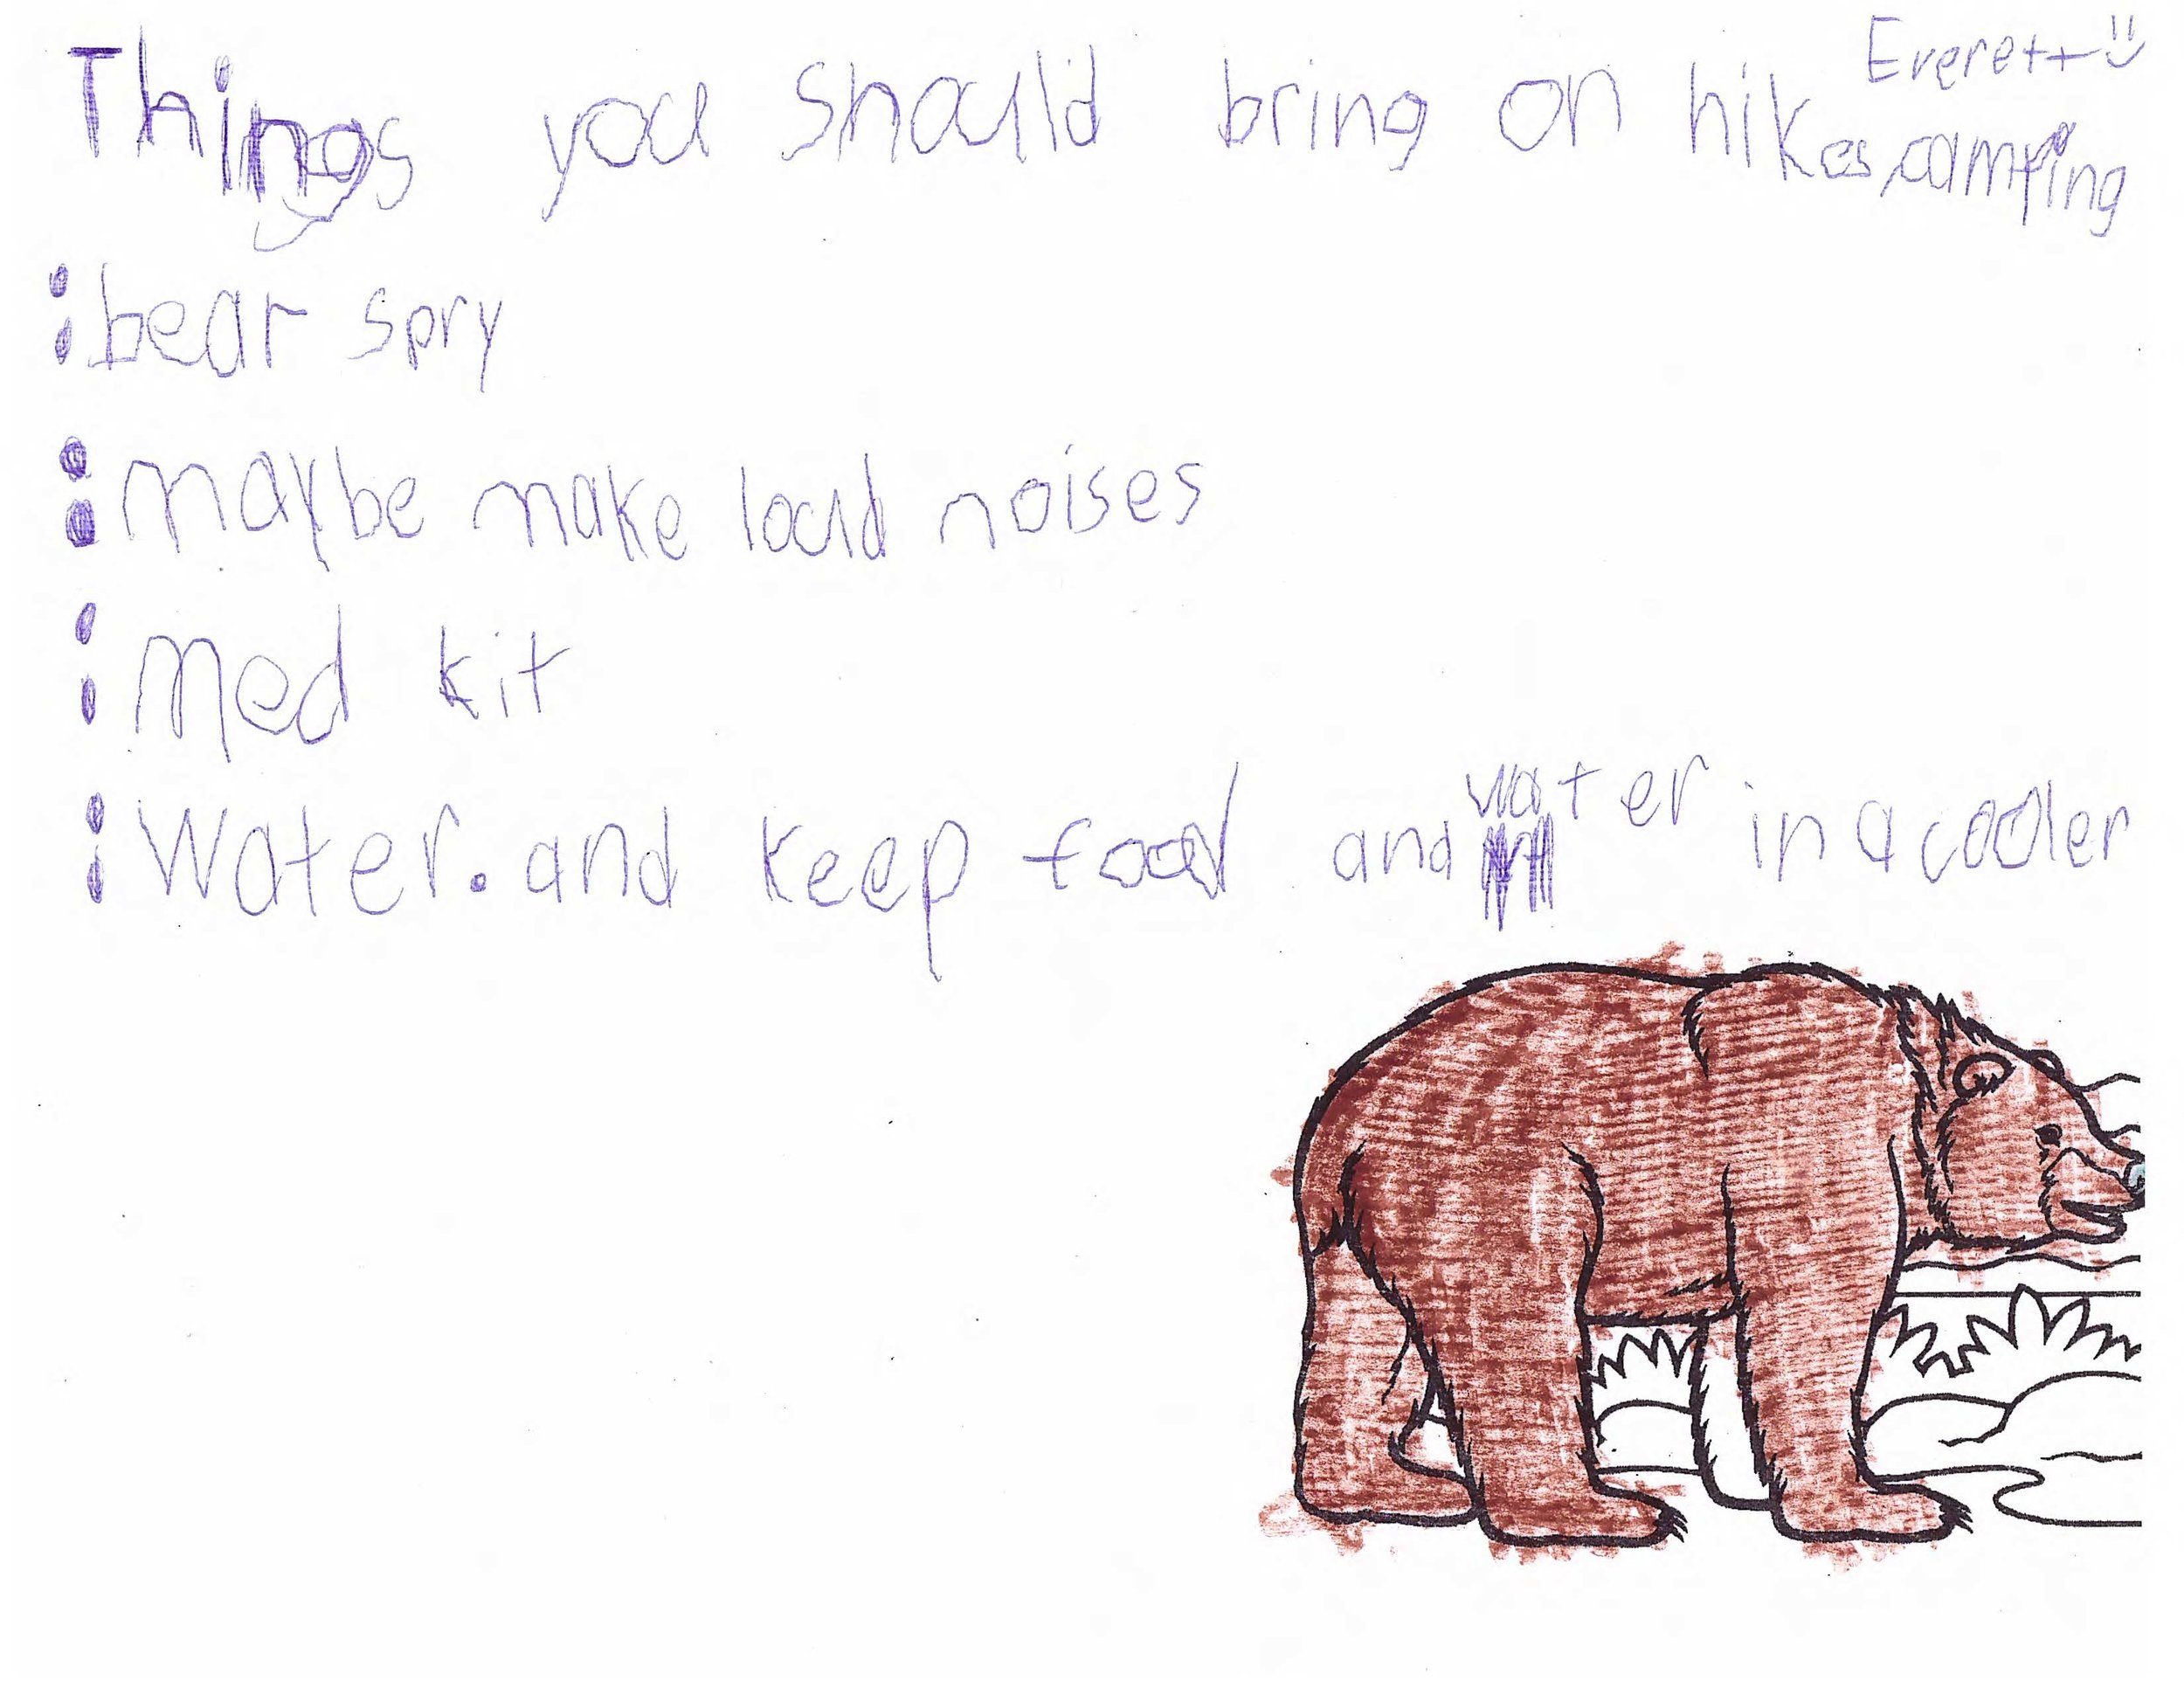 Everett
Things you should bring on hikes, camping
: bear spry
: maybe make loud noises
: Med kit
: Water. and keep food and water in a cooler